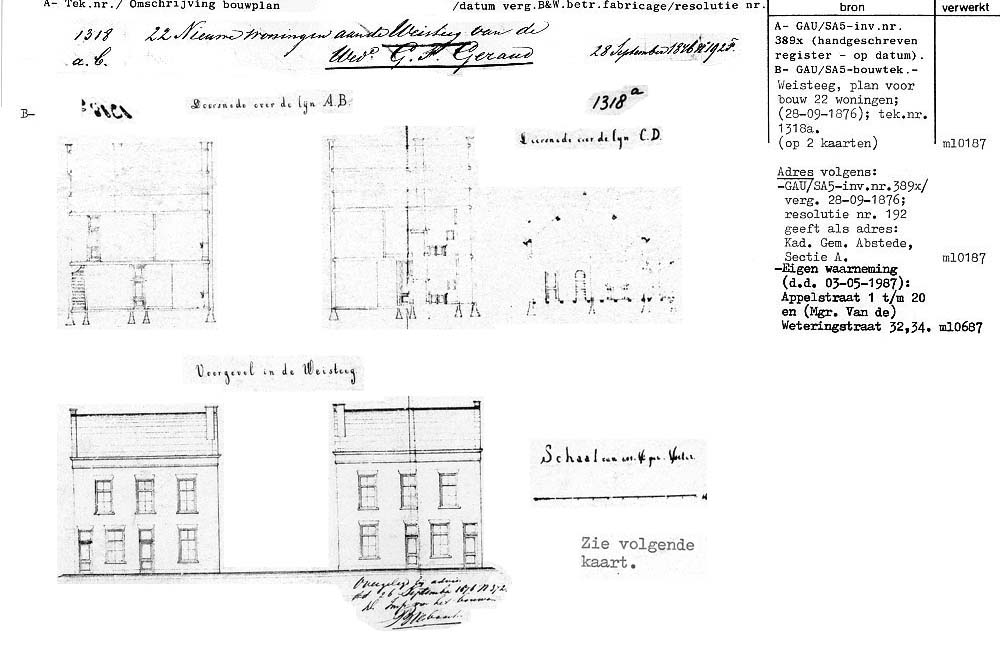 A- Tek.nr./ Omschrijving bouwplan /datum verg.B&W.betr.fabricage/resolutie nr.
bron verwerkt
1318 22 Nieuwe woningen aan de Weisteeg van de
a. b. Wed. G. F. Gerand 28 September
A- GAU/SA5-inv.nr.
389x (handgeschreven
register - op datum).
B- GAU/SA5-bouwtek.-
Weisteeg, plan voor
bouw 22 woningen;
(28-09-1876); tek.nr.
1318a.
(op 2 kaarten) ml0187
Adres volgens:
-GAU/SA5-inv.nr.389x/
verg. 28-09-1876;
resolutie nr. 192
geeft als adres:
Kad. Gem. Abstede,
Sectie A. ml0187
-Eigen waarneming
(d.d. 03-05-1987):
Appelstraat 1 t/m 20
en (Mgr. Van de)
Weteringstraat 32,34. ml0687
B-
Doorsnede over de lyn A.B.
1318a
Doorsnede over de lyn C.D.
Voorgevel in de Weisteeg
Schaal van
Zie volgende
kaart.
September
het bouwen